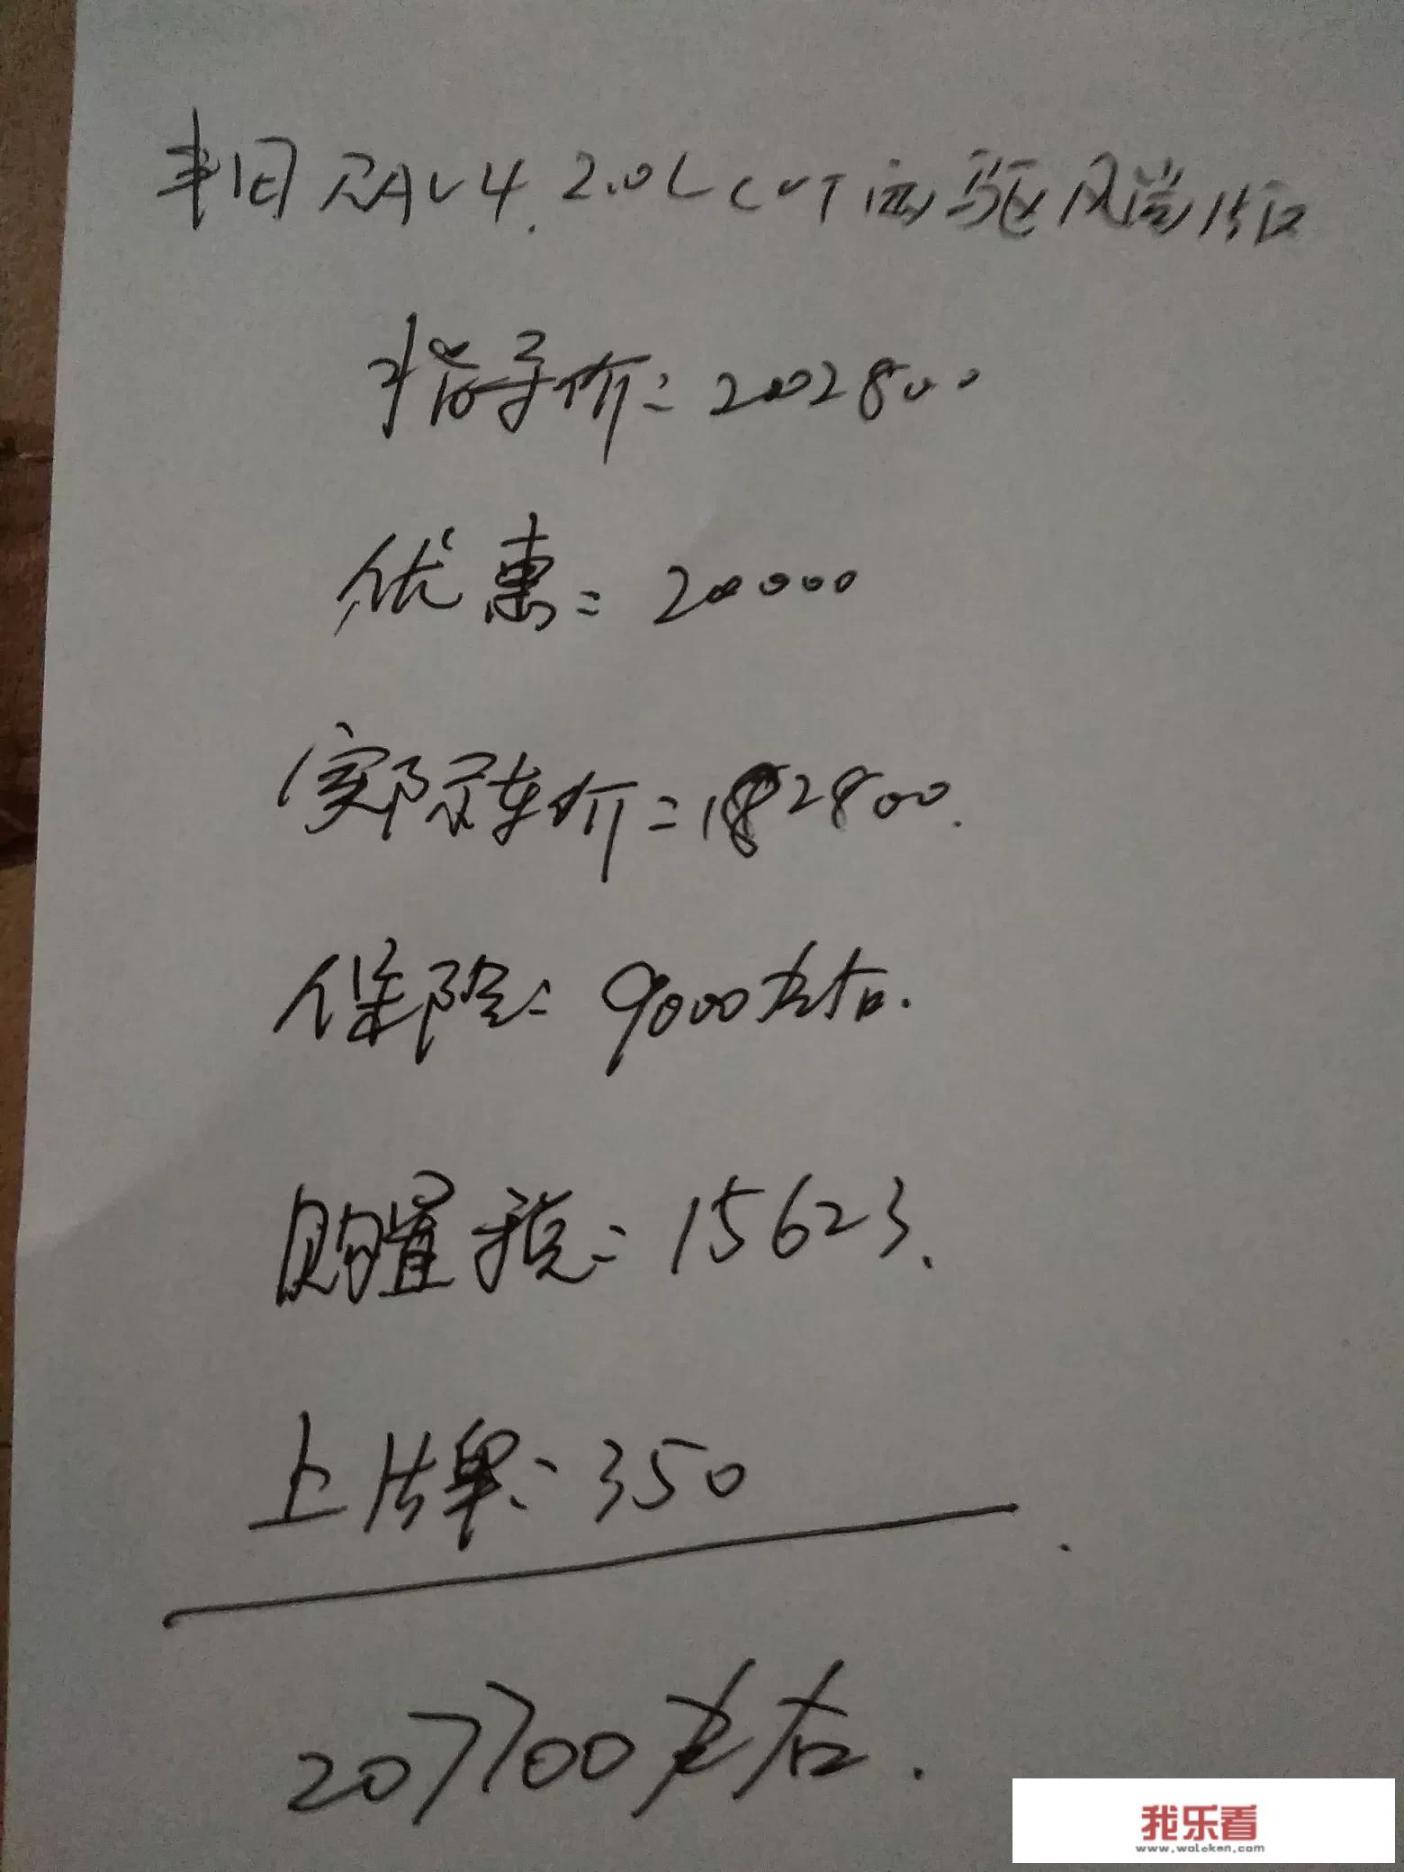 丰田RAV4.2.0L CVT两驱风尚版
指导价:202800
优惠:20000
实际车价:182800.
保险:9000左右.
购置税:15623.
上牌:350
207700左右.
我乐看
www.woleken.com